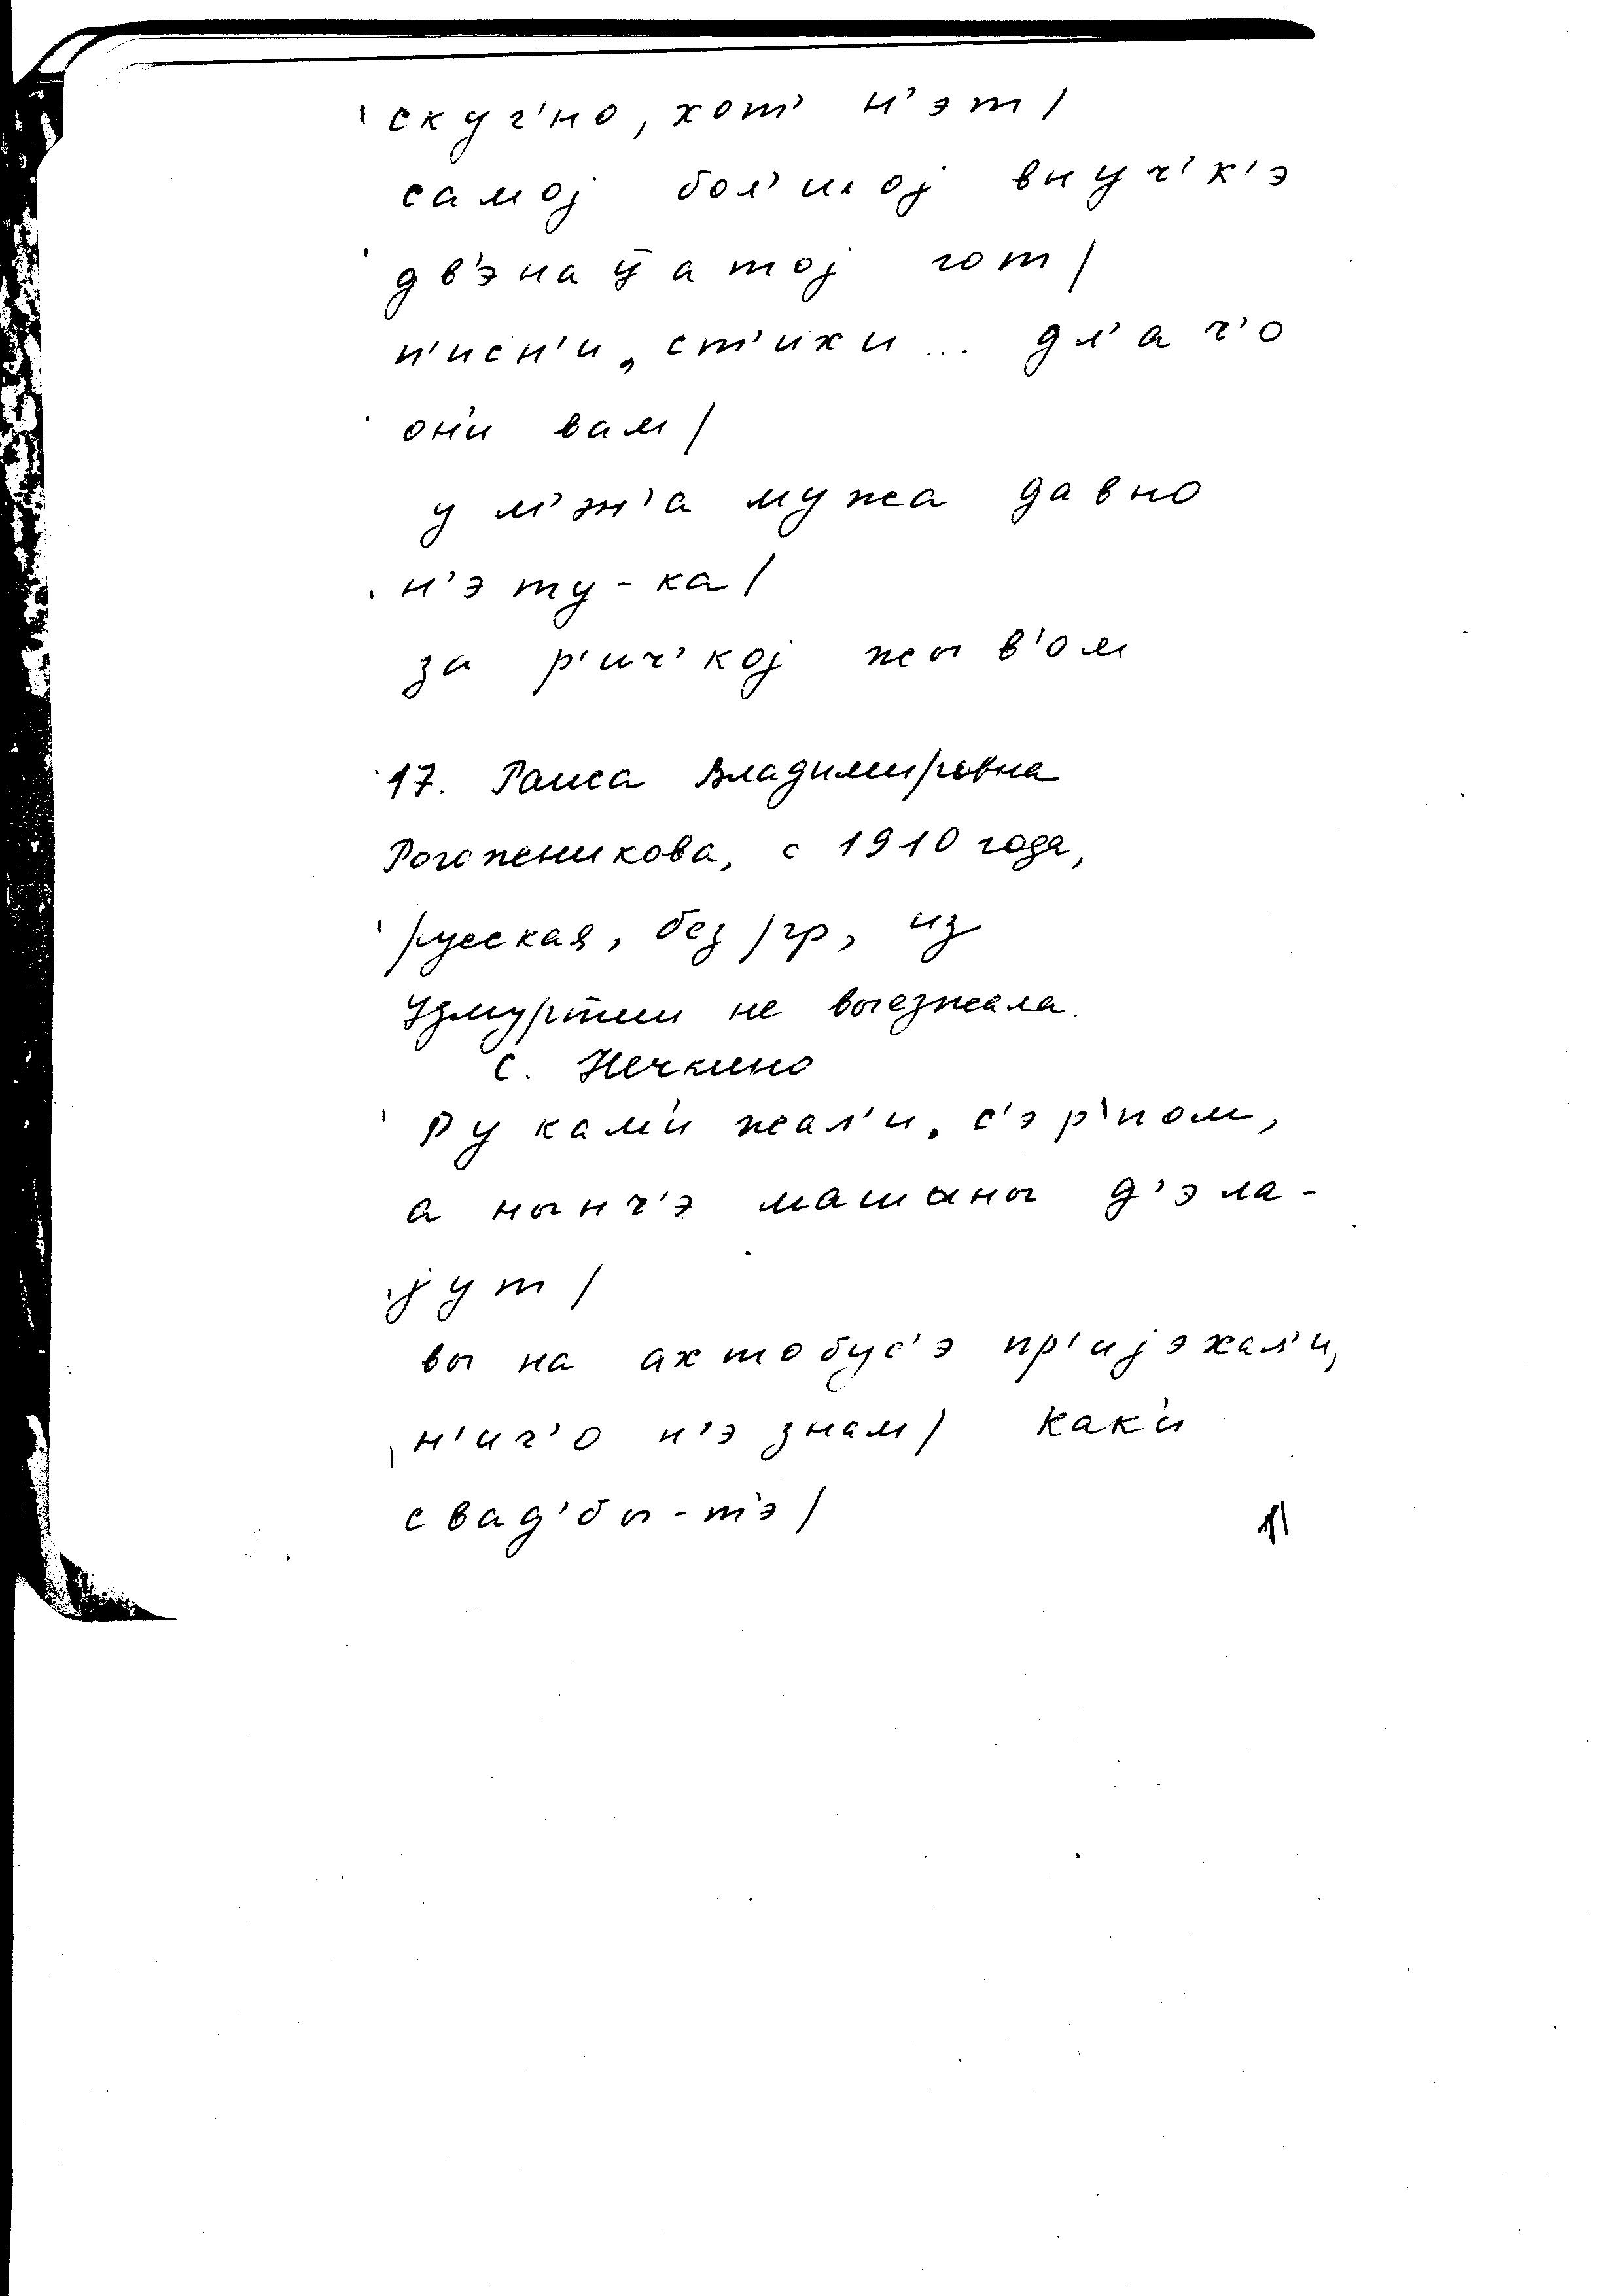 скуч'но, хот' н'эт/
самој бол'шој внуч'к'э
дв'энац̄атој гот/
п'исн'и, ст'ихи... дл'а ч'о
он'и вам/
у м'эн'а мужа давно
н'эту-ка/
за р'ич'кој жыв'ом
17. Раиса Владимировна
Рогожникова, с 1910 года,
русская, без/гр, из
Удмуртии не выезжала.
с. Нечкино
Рукам'и жал'и, с'эр'пом,
а нынч'э машыны д'эла-
јут/
вы на ахтобус'э пр'ијэхал'и,
н'ич'о н'э знам/ как'и
свад'бы-т'э/